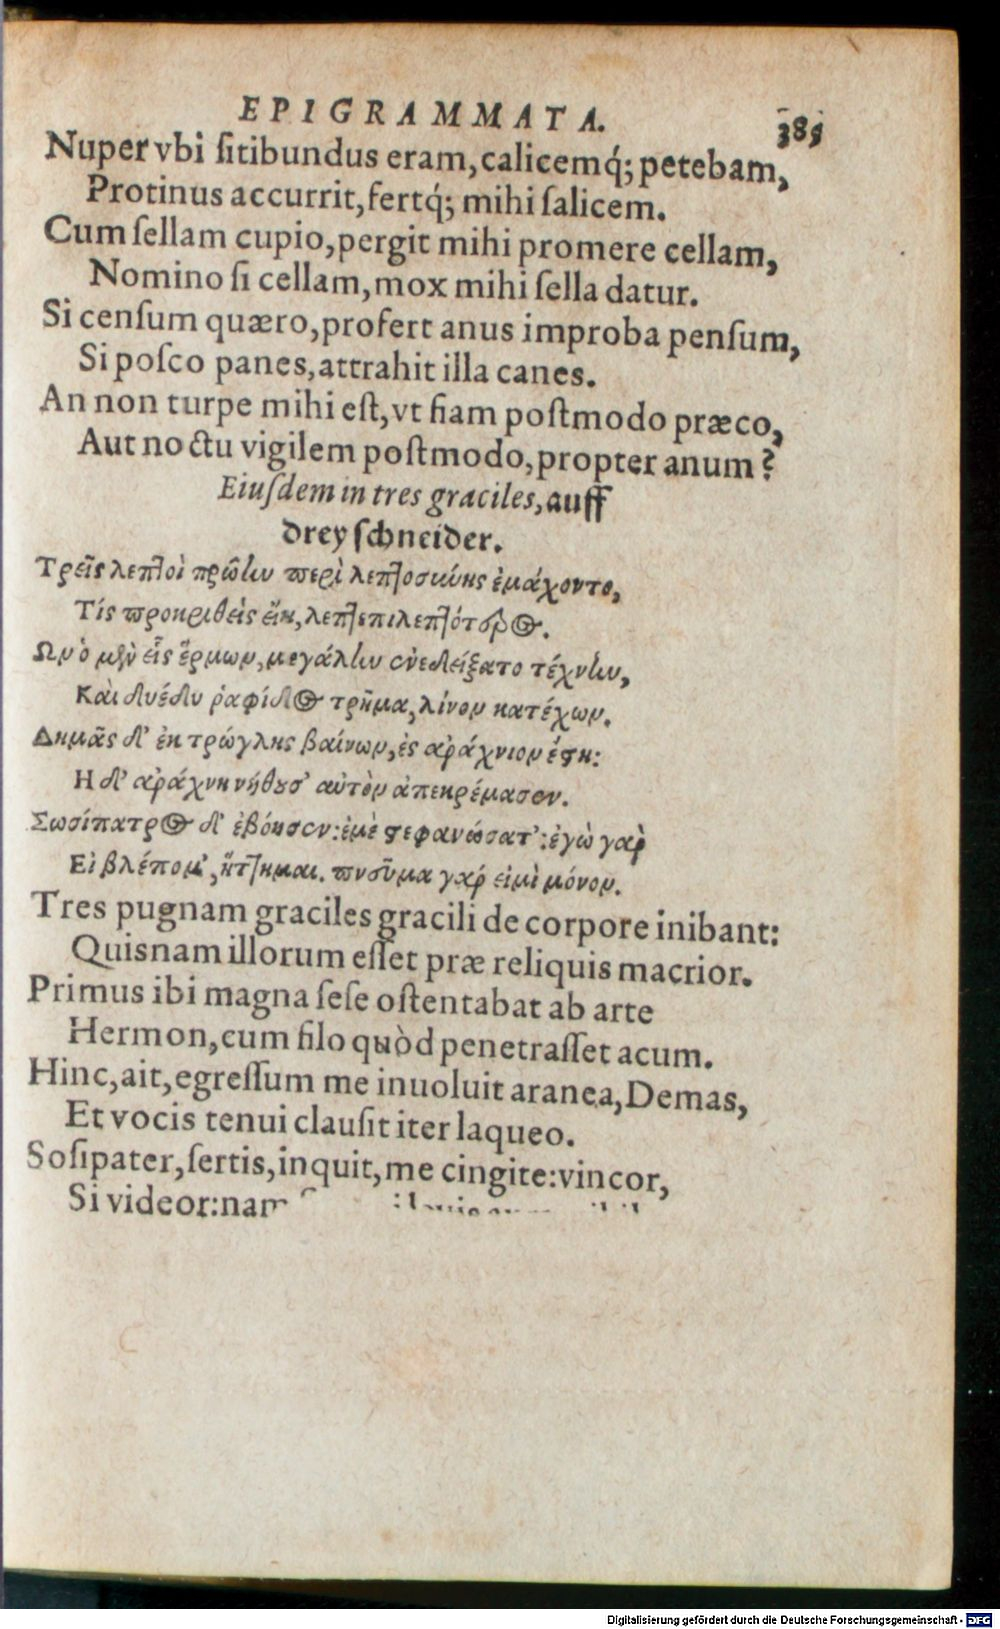 EPIGRAMMATA. 385
Nuper vbi ſitibundus eram, calicemq́; petebam,
Protinus accurrit, fertq́; mihi ſalicem.
Cum ſellam cupio, pergit mihi promere cellam,
Nomino ſi cellam, mox mihi ſella datur.
Si cenſum quæro, profert anus improba penſum,
Si poſco panes, attrahit illa canes.
An non turpe mihi eſt, vt fiam poſtmodo præco,
Aut noctu vigilem poſtmodo, propter anum?
Eiuſdem in tres graciles, auff
drey ſchneider.
Τρεῖς λεπτοὶ πρώην περὶ λεπτοσύνης ἐμάχοντο,
Τίς προκριθεὶς εἴη, λεπτεπιλεπτότερος.
Ων ὁ μὲν εἷς ἕρμων, μεγάλην ἐνεδείξατο τέχνην,
Καὶ διέδυ ῥαφίδος τρῆμα, λίνον κατέχων.
Δημᾶς δ' ἐκ τρώγλης βαίνων, ἐς ἀράχνιον ἔστη:
Η δ' ἀράχνη νήθουσ' αὐτὸν ἀπεκρέμασεν.
Σωσίπατρος δ' ἐβόησεν: ἐμὲ στεφανώσατ': ἐγὼ γὰρ
Εἰ βλέπομ', ἥττημαι. πνεῦμα γάρ εἰμι μόνον.
Tres pugnam graciles gracili de corpore inibant:
Quisnam illorum eſſet præ reliquis macrior.
Primus ibi magna ſeſe oſtentabat ab arte
Hermon, cum filo quòd penetraſſet acum.
Hinc, ait, egreſſum me inuoluit aranea, Demas,
Et vocis tenui clauſit iter laqueo.
Soſipater, ſertis, inquit, me cingite: vincor,
Si videor: nam
Digitalisierung gefördert durch die Deutsche Forschungsgemeinschaft - DFG